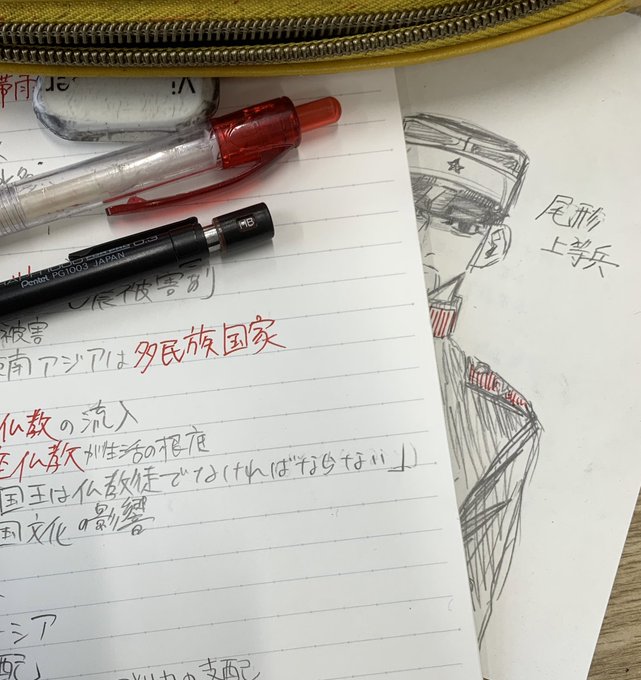 帯雨
HB
Pentel PG1003 JAPAN 0.3
被害
南アジアは多民族国家
仏教の流入
仏教が生活の根底
国王は仏教徒でなければならない」
国文化の影響
シア
配」
の支配
尾形
上等兵